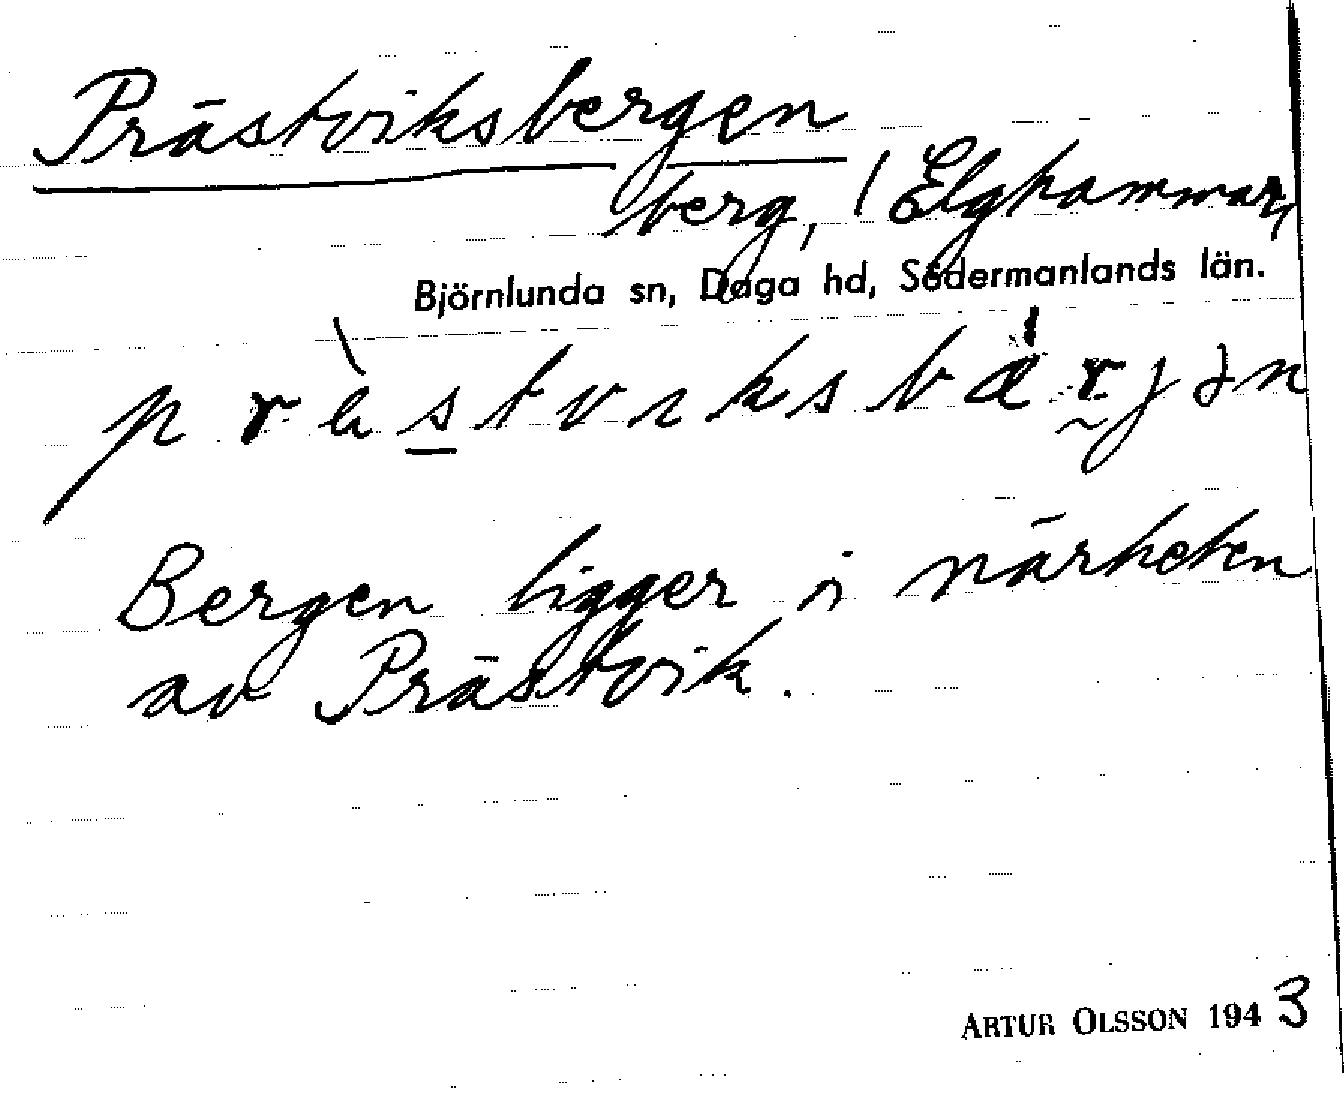 Prästviksbergen
berg, / Elghammar,
Björnlunda sn, Daga hd, Södermanlands län.
Bergen ligger i närheten
av Prästvik.
ARTUR OLSSON 1943